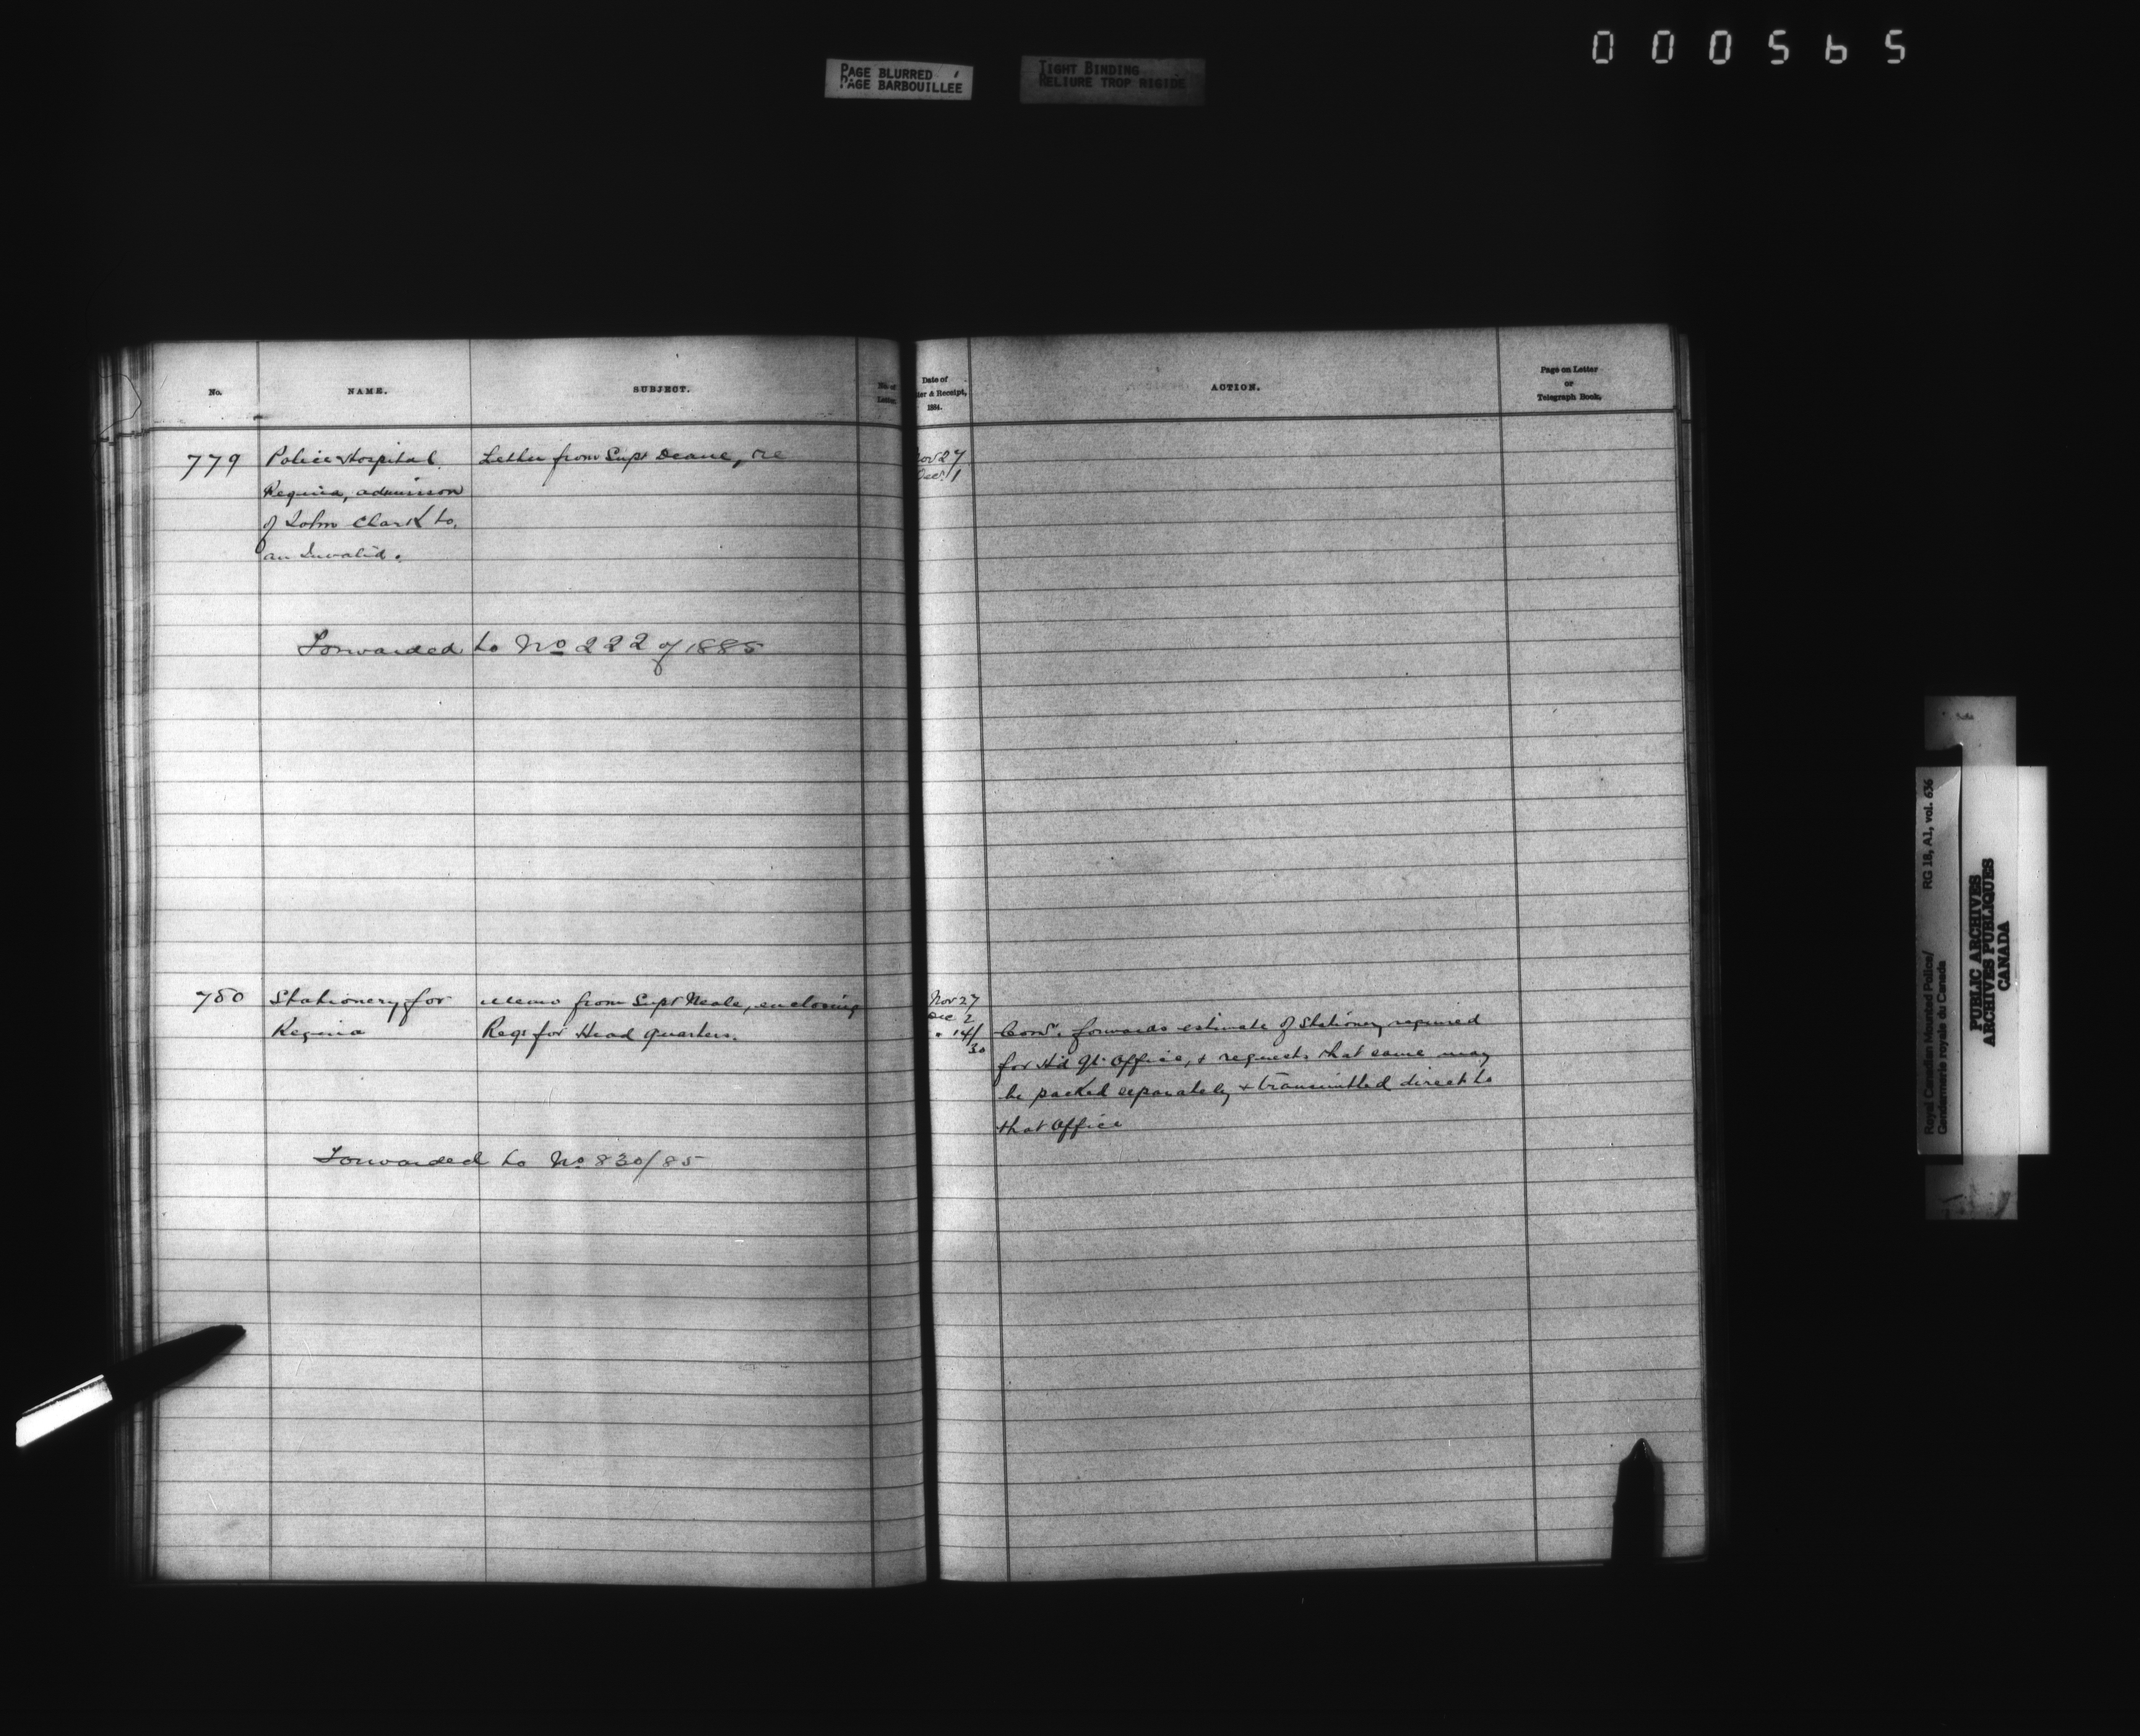 000565
PAGE BLURRED
PAGE BARBOUILLEE
TIGHT BINDING
RELIURE TROP RIGIDE
No.
NAME.
SUBJECT.
No. of
Letter.
Date of
ter & Receipt,
1884.
ACTION.
Page on Letter
or
Telegraph Book.
779
Police Hospital
Regina, admission
of John Clark to,
an Invalid.
Letter from Supt Deane, re
Nov 27
Dec. 1
Forwarded to No 222 of 1885
780
Stationery for
Regina
Memo from Supt Neale, enclosing
Reqs for Head Quarters.
Nov 27
Dec 2
" 14/
30
Comr. forwards estimate of Stationery required
for Hd Qr. Office, & requests that same may
be packed separately & transmitted direct to
that Office
Forwarded to No 830/85
Royal Canadian Mounted Police/
Gendarmerie royale du Canada
RG 18, A1, vol. 636
PUBLIC ARCHIVES
ARCHIVES PUBLIQUES
CANADA